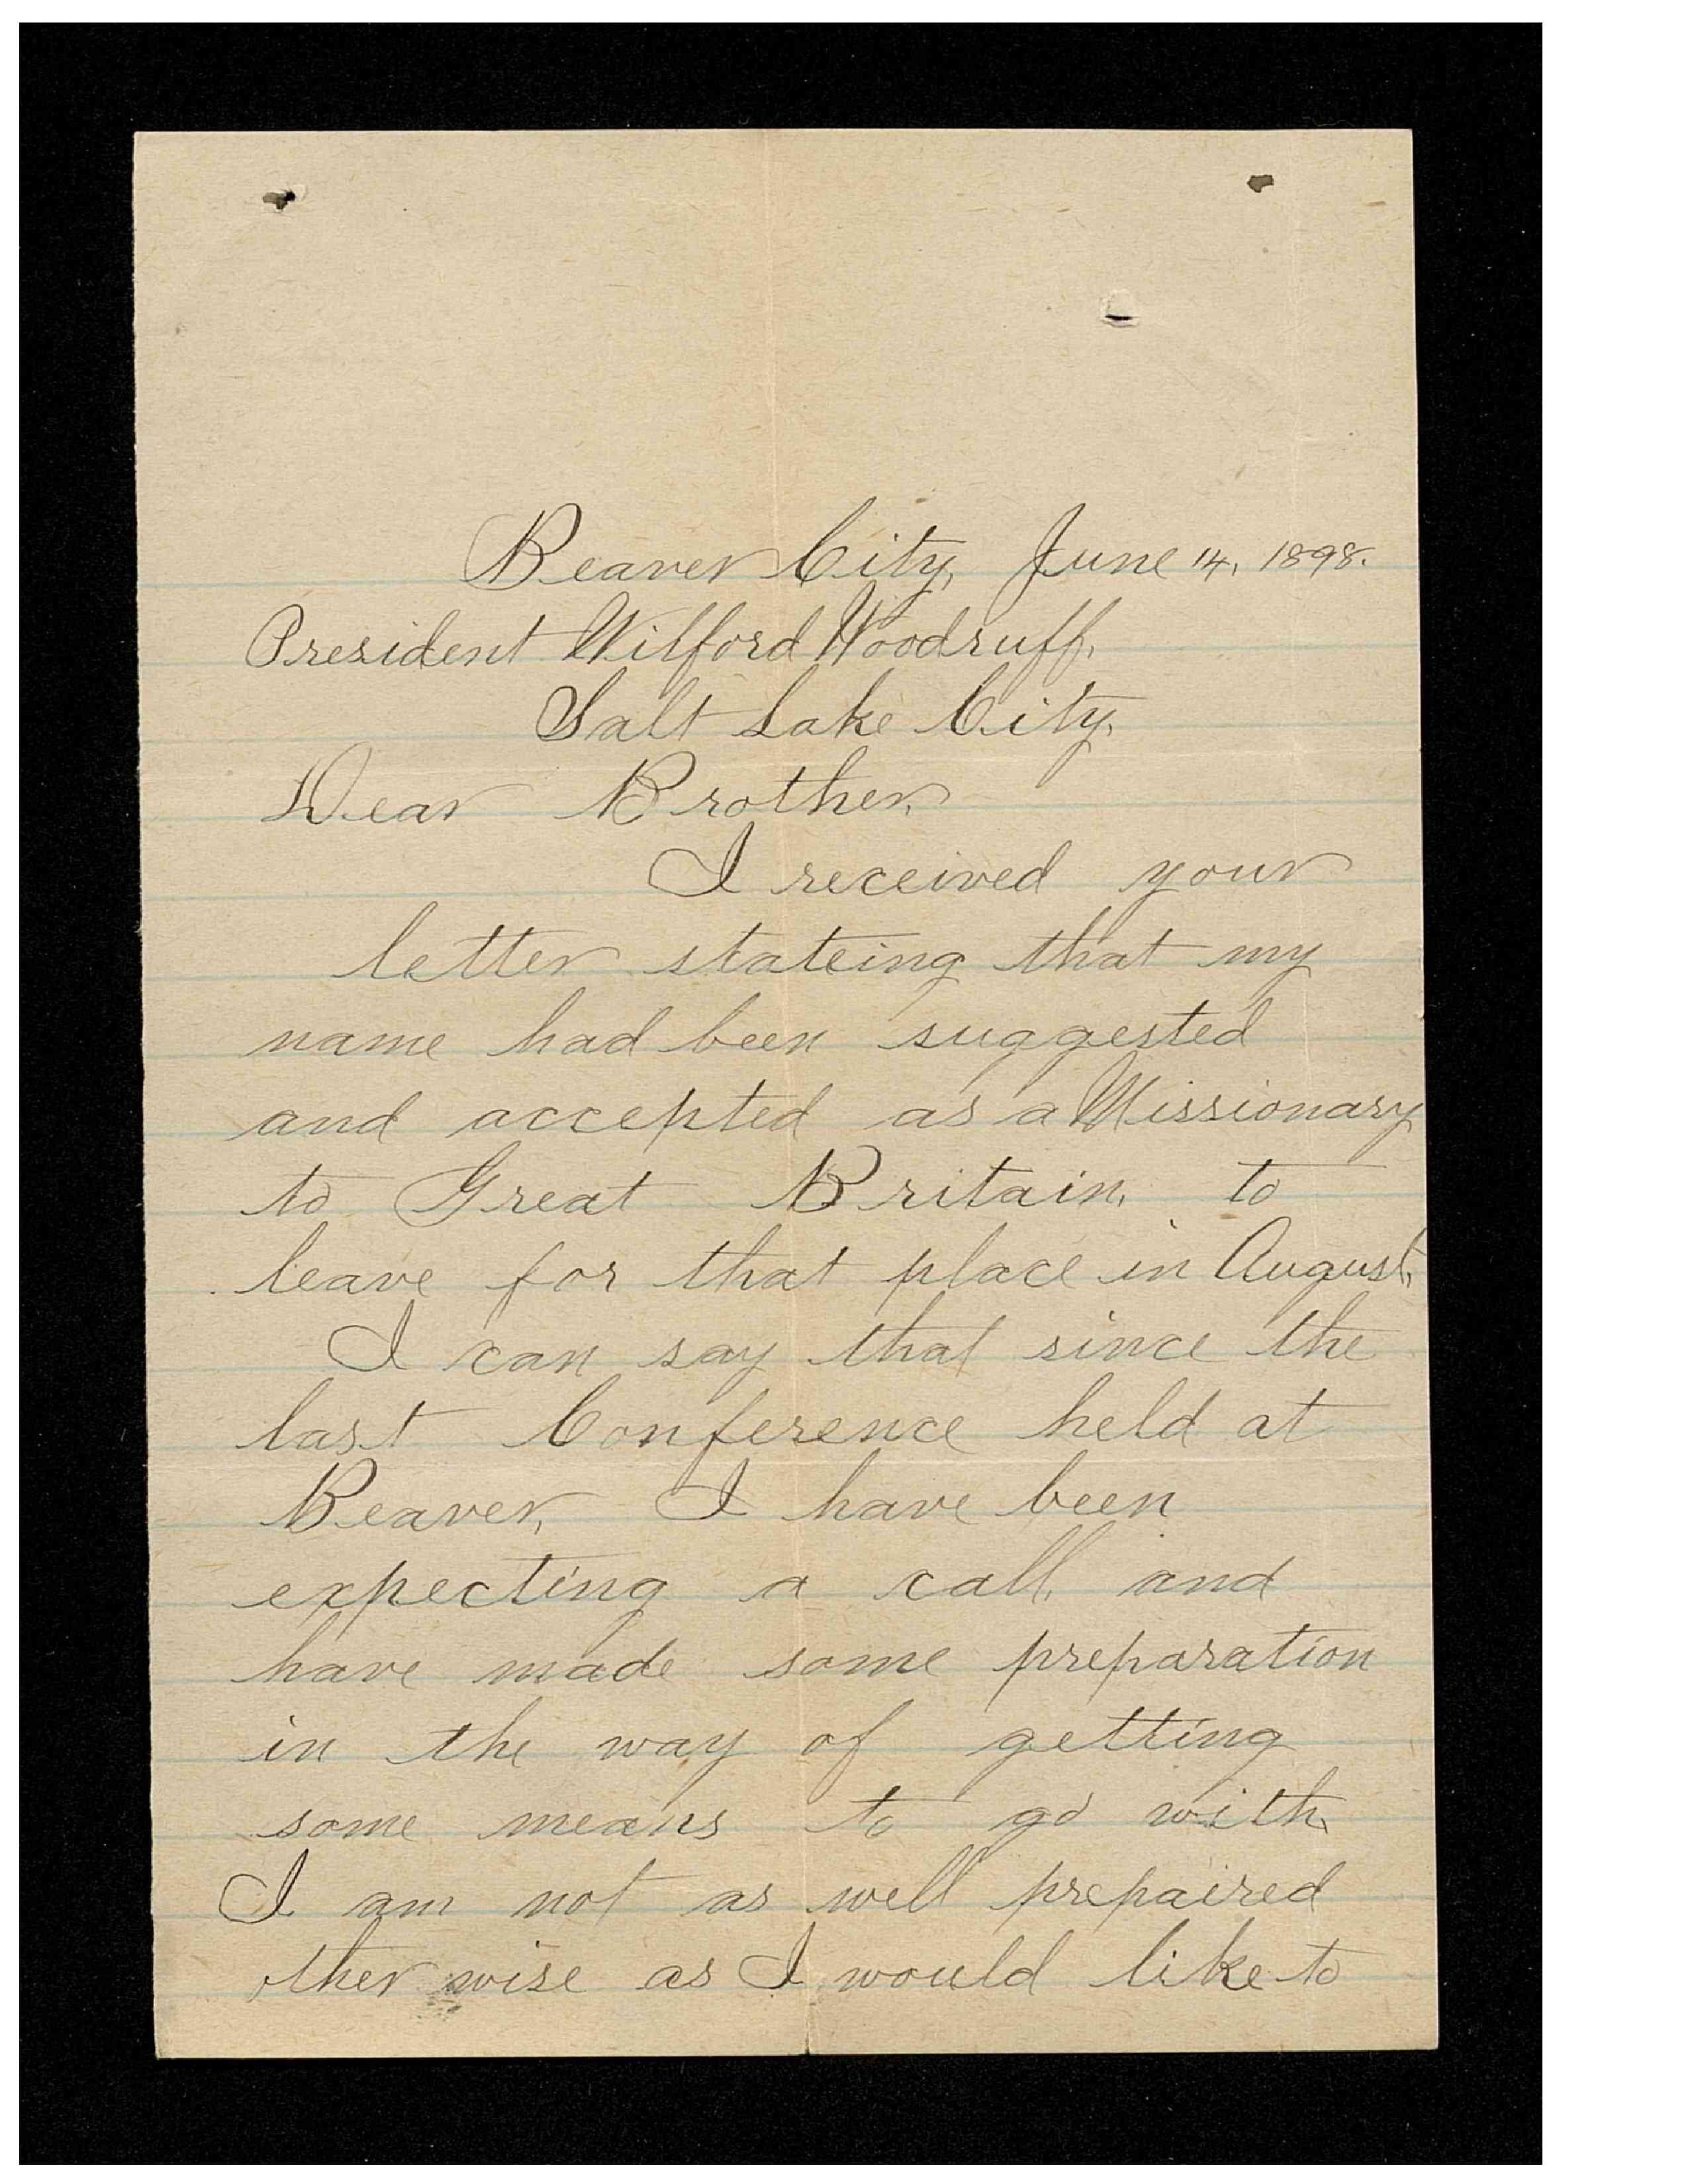 Beaver City, June 14, 1898.
President Wilford Woodruff,
Salt Lake City,
Dear Brother,
I received your
letter stateing that my
name had been suggested
and accepted as a Missionary
to Great Britain, to
leave for that place in August,
I can say that since the
last Conference held at
Beaver, I have been
expecting a call, and
have made some preparation
in the way of getting
some means to go with,
I am not as well prepaired
other wise as I would like to